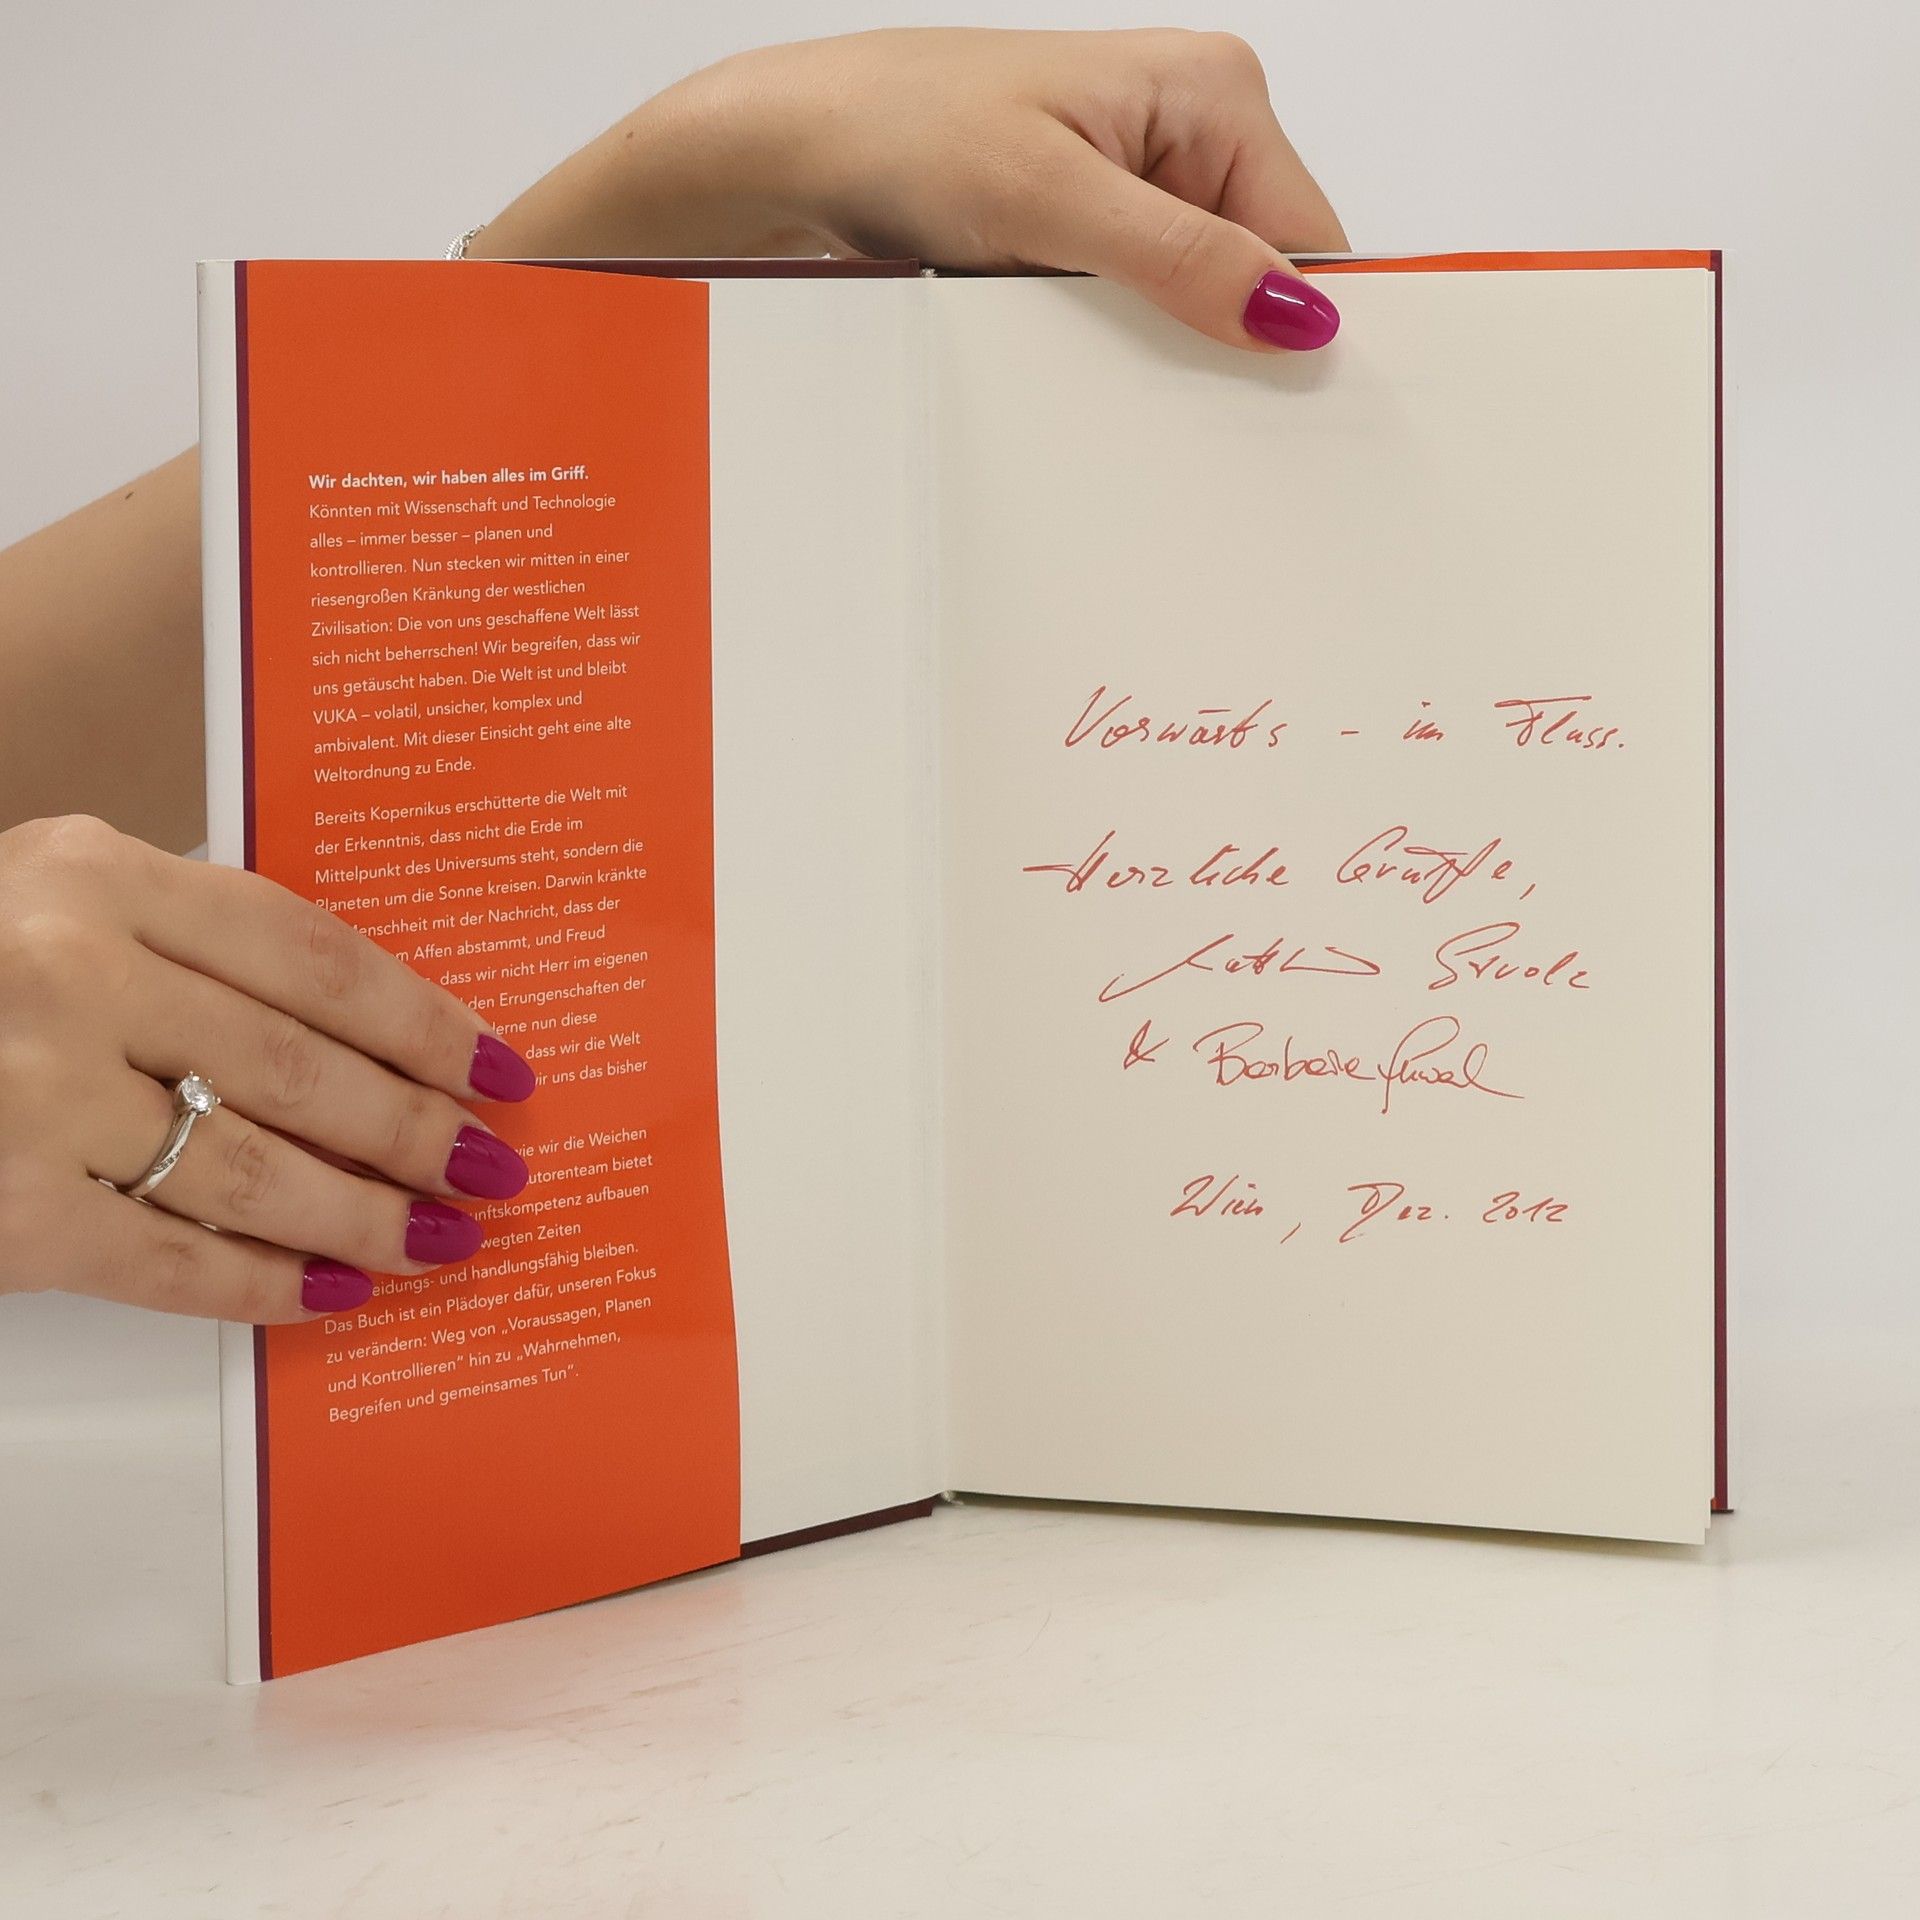 Wir dachten, wir haben alles im Griff.
Könnten mit Wissenschaft und Technologie
alles – immer besser – planen und
kontrollieren. Nun stecken wir mitten in einer
riesengroßen Kränkung der westlichen
Zivilisation: Die von uns geschaffene Welt lässt
sich nicht beherrschen! Wir begreifen, dass wir
uns getäuscht haben. Die Welt ist und bleibt
VUKA – volatil, unsicher, komplex und
ambivalent. Mit dieser Einsicht geht eine alte
Weltordnung zu Ende.
Bereits Kopernikus erschütterte die Welt mit
der Erkenntnis, dass nicht die Erde im
Mittelpunkt des Universums steht, sondern die
Planeten um die Sonne kreisen. Darwin kränkte
enschheit mit der Nachricht, dass der
m Affen abstammt, und Freud
, dass wir nicht Herr im eigenen
den Errungenschaften der
erne nun diese
dass wir die Welt
ir uns das bisher
wie wir die Weichen
utorenteam bietet
unftskompetenz aufbauen
wegten Zeiten
eidungs- und handlungsfähig bleiben.
Das Buch ist ein Plädoyer dafür, unseren Fokus
zu verändern: Weg von „Voraussagen, Planen
und Kontrollieren“ hin zu „Wahrnehmen,
Begreifen und gemeinsames Tun“.
Vorwärts – im Fluss.
Herzliche Grüße,
& Barbara
Wien, Dez. 2012